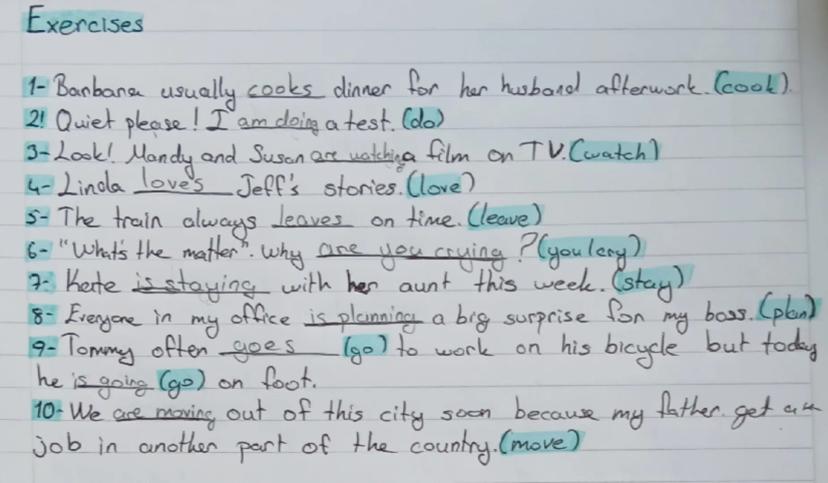 Exercises
1- Barbara usually cooks dinner for her husband afterwork. (cook).
2! Quiet please! I am doing a test. (do)
3- Look! Mandy and Susan are watching a film on TV. (watch)
4- Linda loves Jeff's stories. (love)
5- The train always leaves on time. (leave)
6- "What's the matter". Why are you crying? (you/cry)
7- Kate is staying with her aunt this week. (stay)
8- Everyone in my office is planning a big surprise for my boss. (plan)
9- Tommy often goes (go) to work on his bicycle but today
he is going (go) on foot.
10- We are moving out of this city soon because my father get a
job in another part of the country. (move)